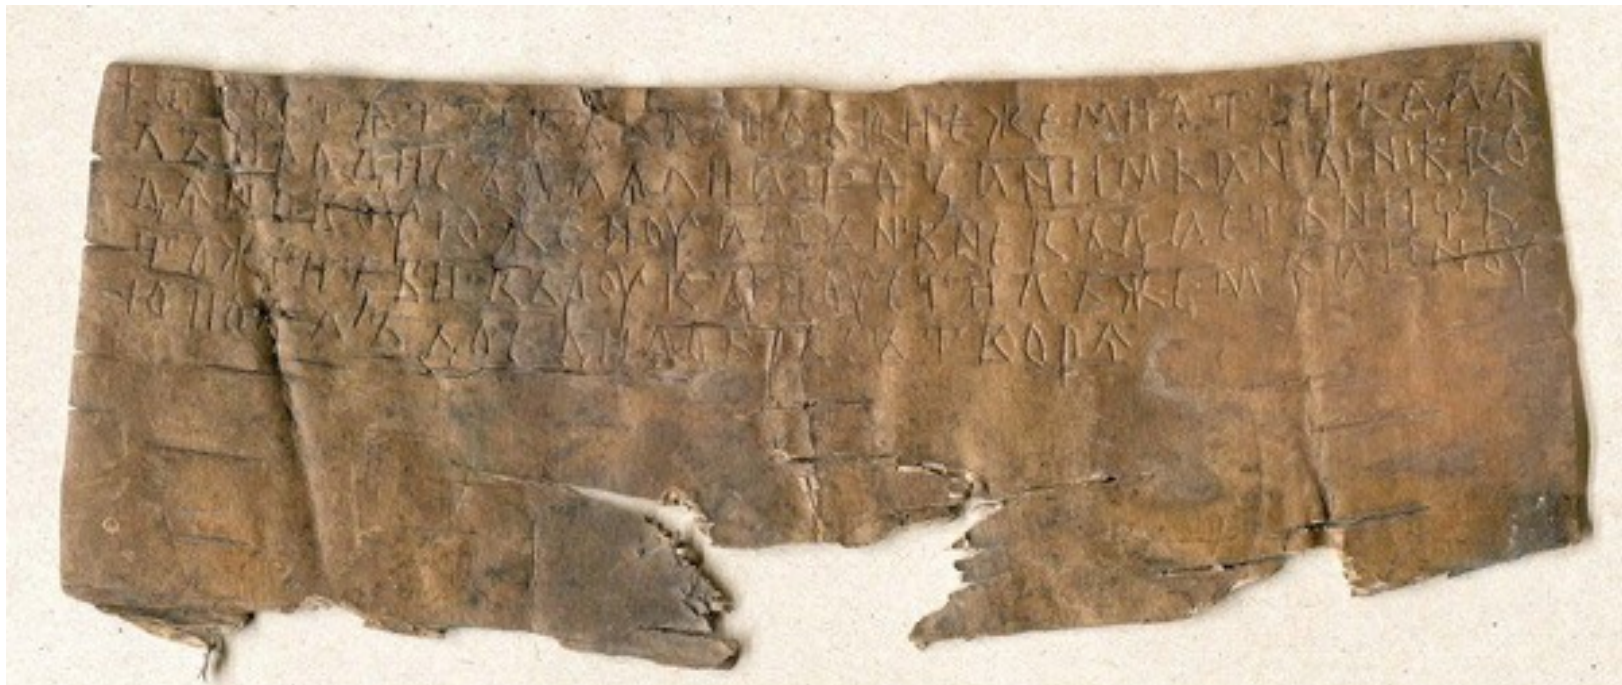 + ѿгостѧтыкъвасильвиѥжемиотьцьдаѧ
лъиродисъдаѧлиатозанимьанынѣво
дѧновоуюженоуамънѣневъдастьничь
тожеизбивъроукыпоустилъжемѧаиноу
юпоѧлъдоедидобрѣсътворѧ